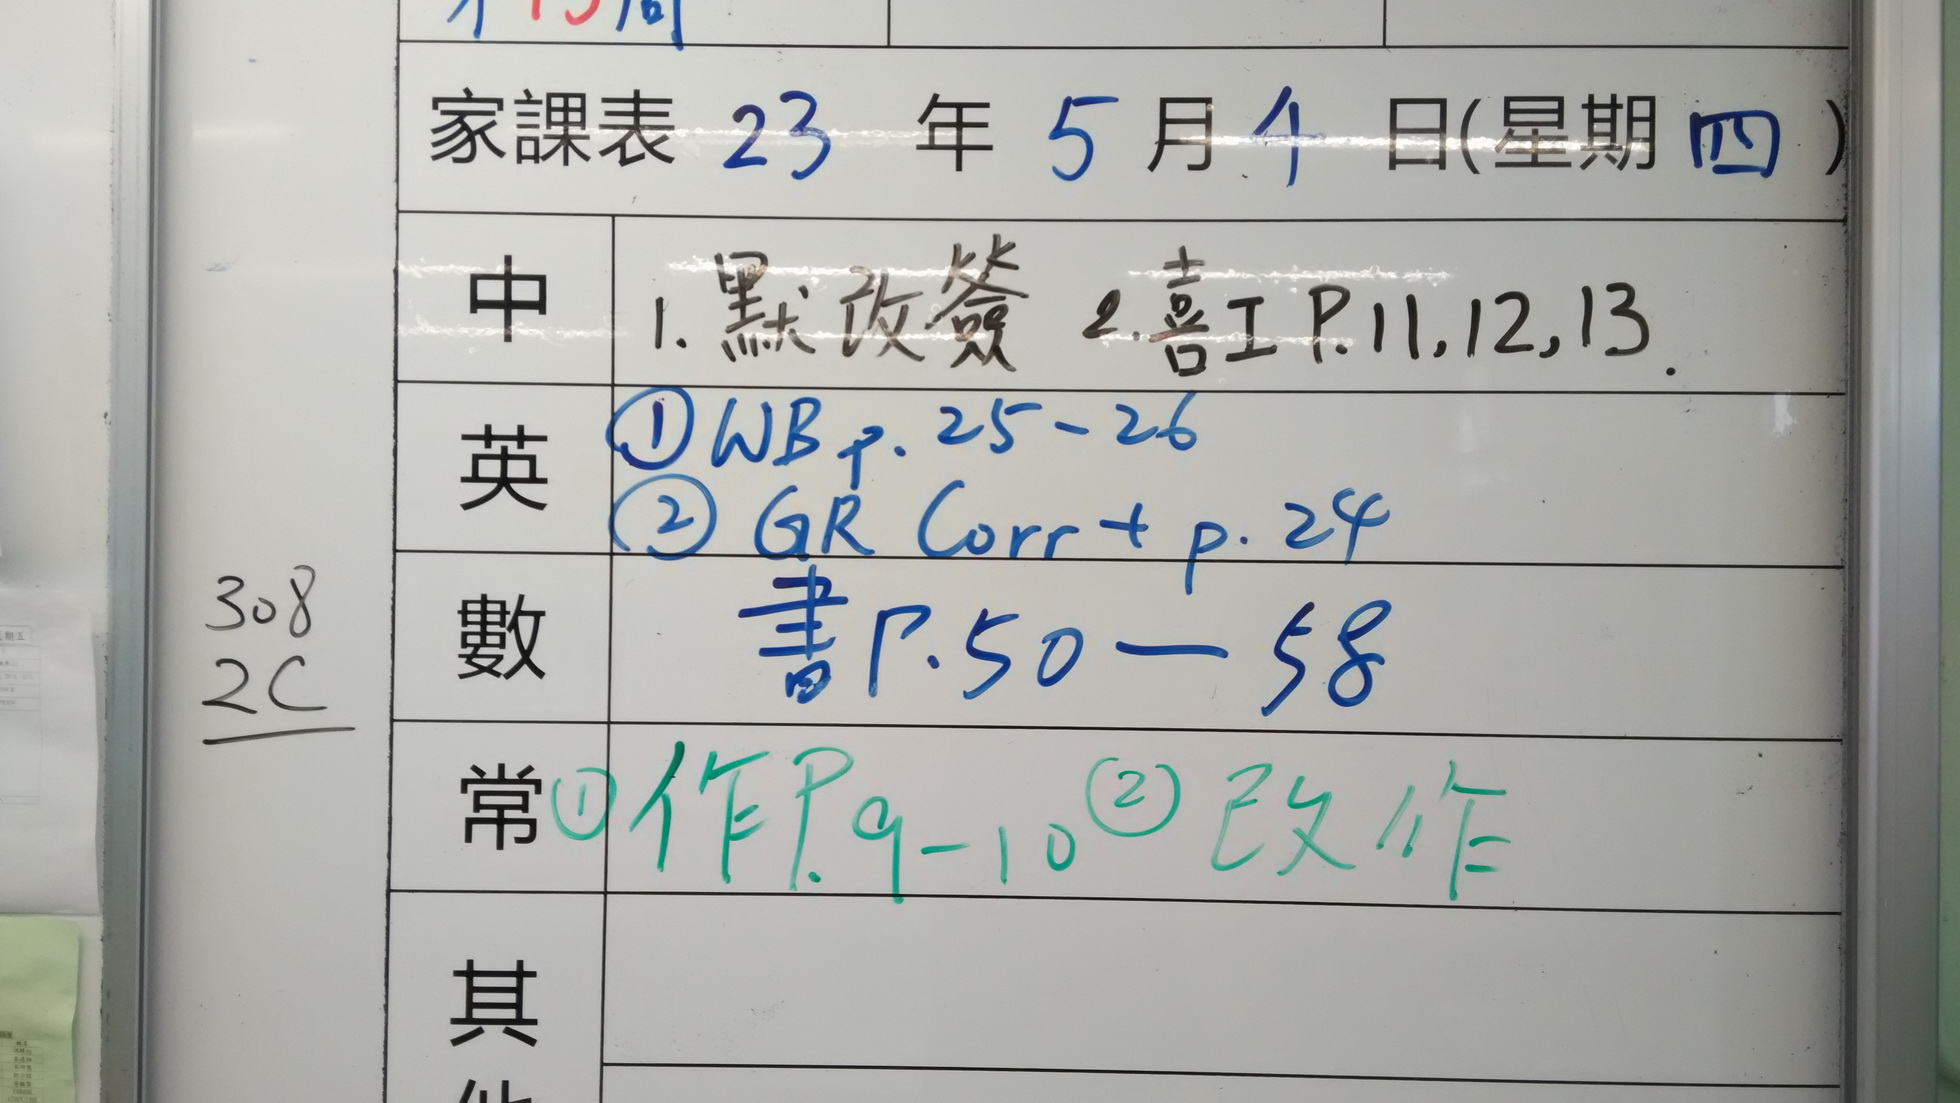 第13周
家課表 23 年 5 月 4 日(星期 四 )
中 1. 默改簽 2. 喜I P.11, 12, 13.
英 ① WB p. 25-26
② GR Corr + p. 24
數 書P.50—58
常 ① 作P.9-10 ② 改作
其他
308
2C